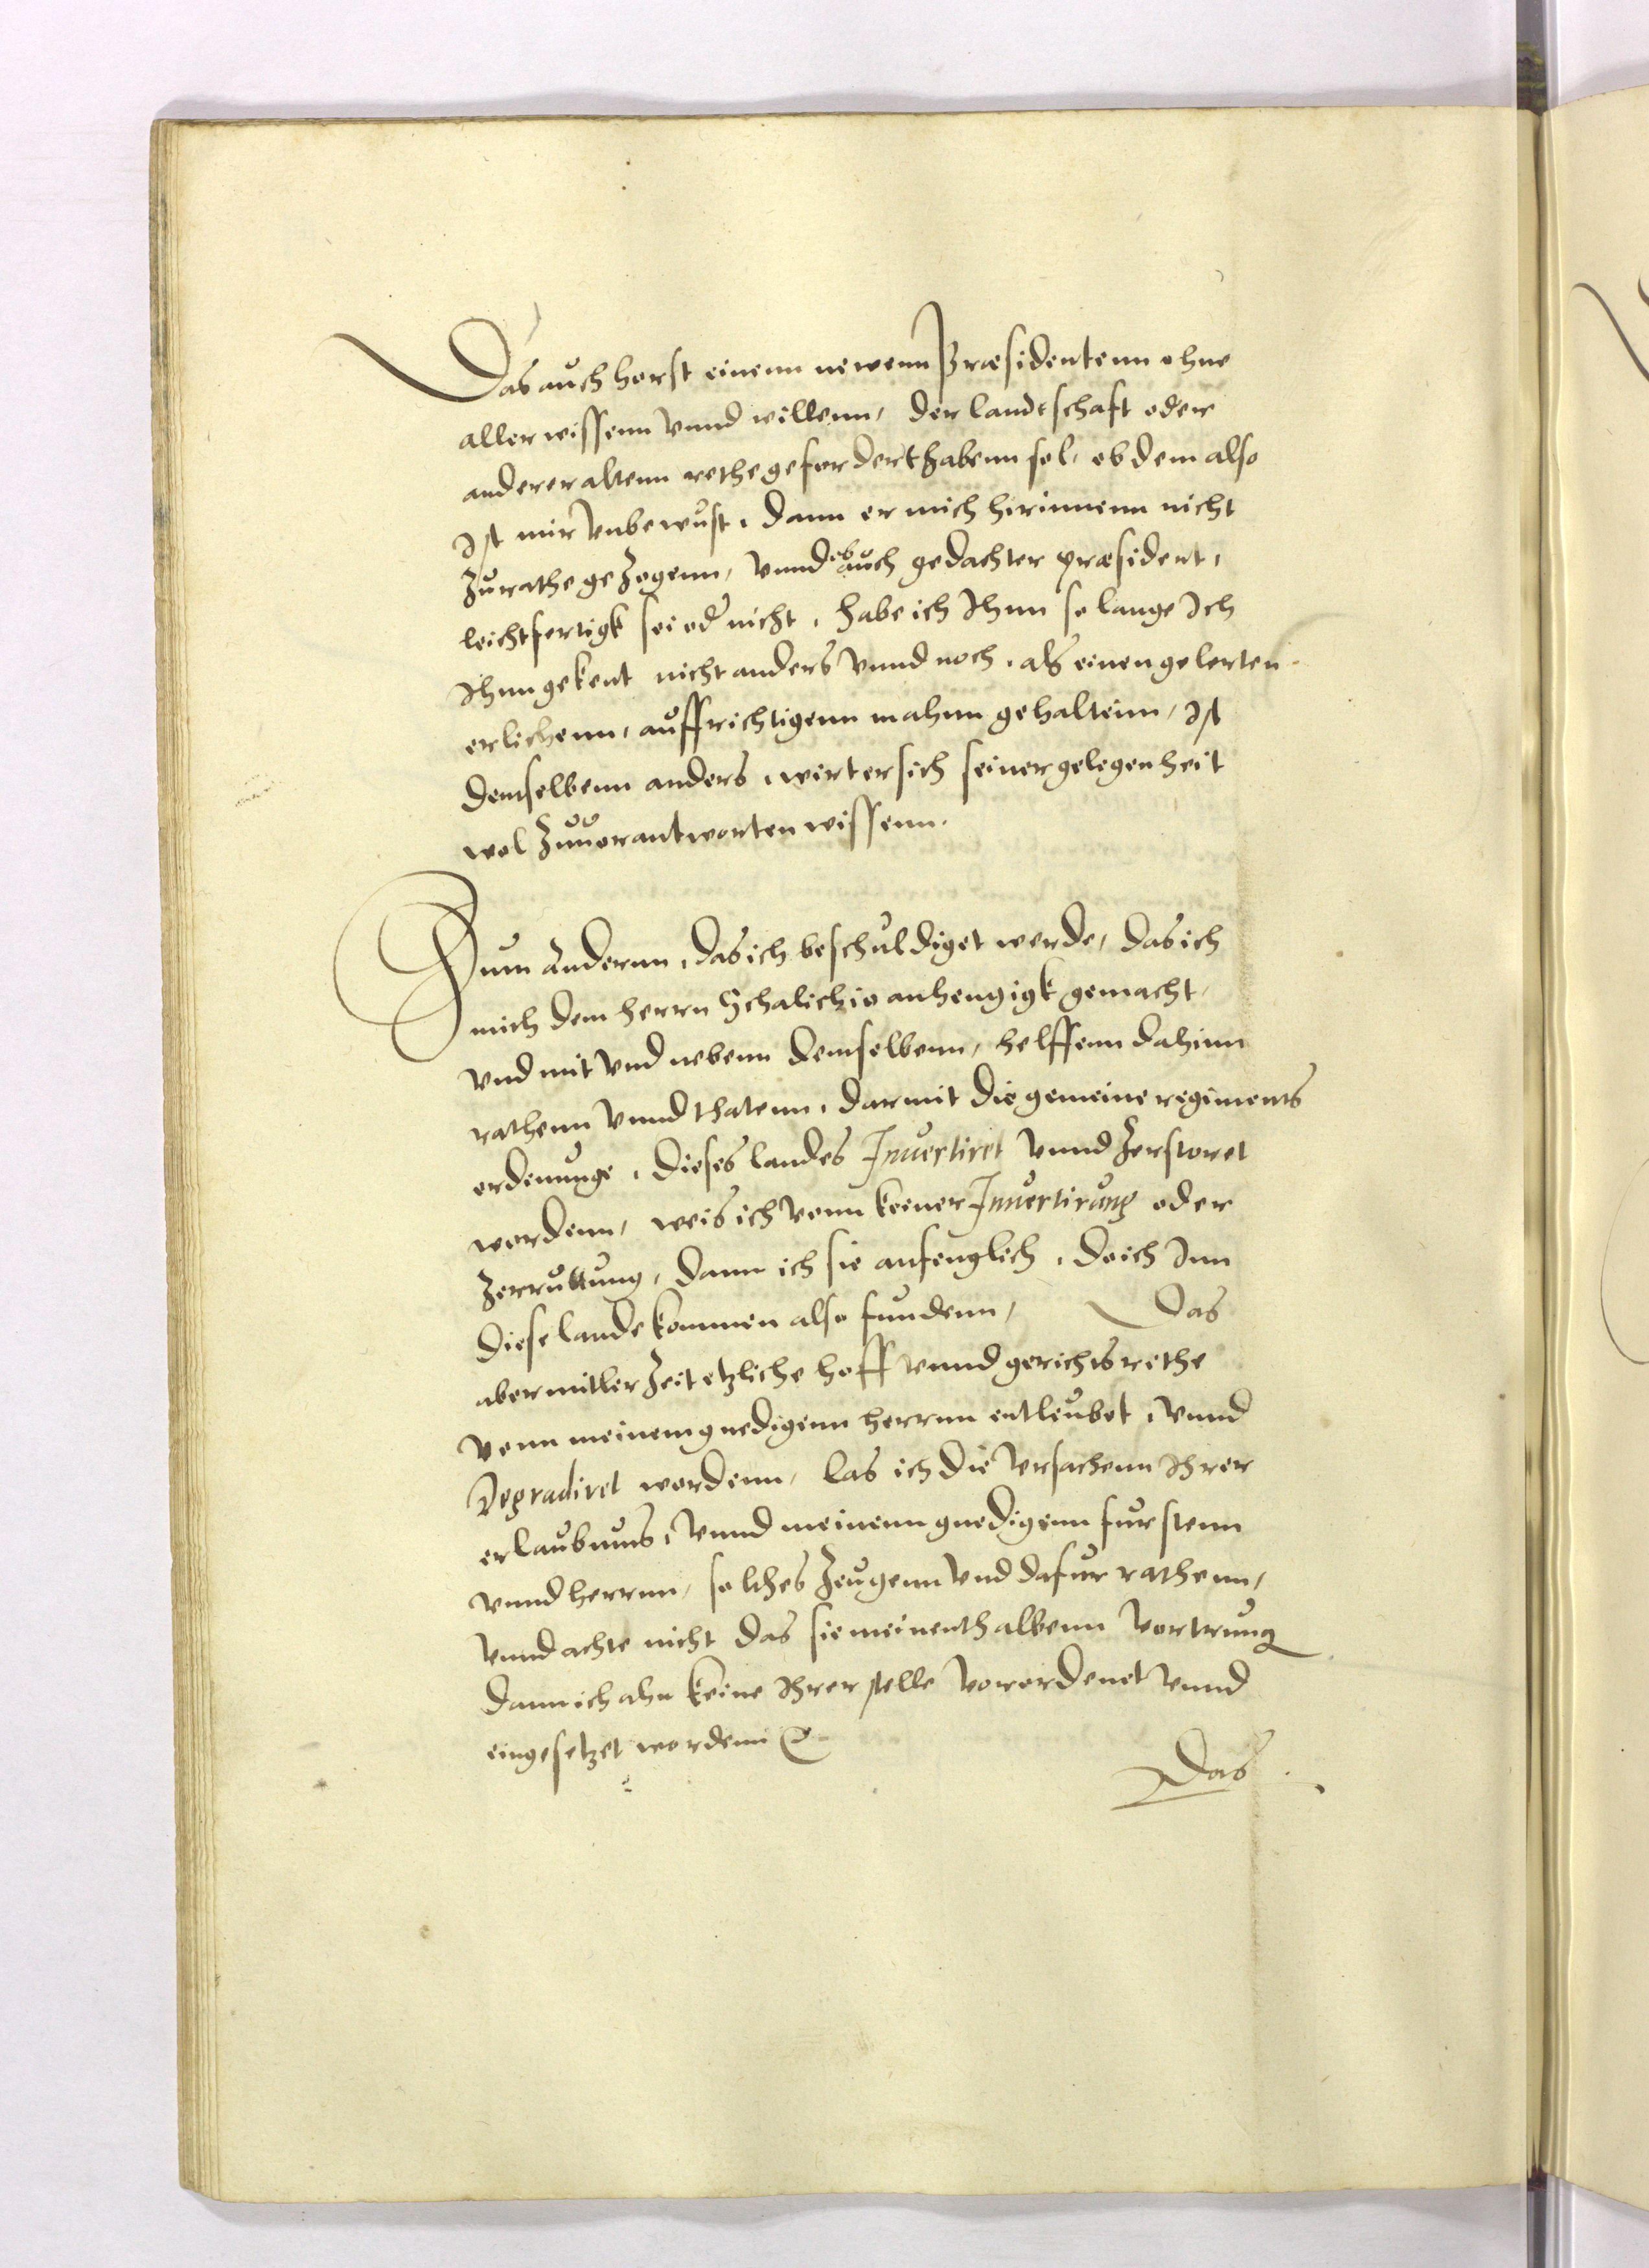 Das auch horst einenn newenn Præsidentenn ohne
aller wissenn vnnd willenn, der landtschaft oder
anderer altenn rethe gefordert habenn sol, ob dem also
Ist mir vnbewust, dann er mich hirinnenn nicht
zu rathe gezogenn, vnnd ob auch gedachter præsident,
leichtfertigk sei od nicht, habe ich Ihnn so lange Ich
Ihnn gekent nicht anders vnnd noch, als einen gelerten
erlichenn, auffrichtigenn mahnn gehaltenn, Ist
demselbenn anders, wirt er sich seiner gelegenheit
wol zuuorantworten wissenn.
Zum Anderen, das ich beschuldiget werde, das ich
mich dem herrn Schalichio anhengigk gemacht,
vnd mit vnd nebenn demselbenn, helffenn dahinn
rathenn vnnd thatenn, darmit die gemeine regiments
ordenunge, dieses landes Inuertiret vnnd zerstoret
wordenn, weis ich vonn keiner Inuertirung oder
zerruttung, dann ich sie anfenglich, do ich Inn
diese lande kommen also fundenn, Das
aber mitler zeit etzliche hoff vnnd gerichts rethe
vonn meinem gnedigenn herrnn entleubet, vnnd
Degradiret wordenn, las ich die vrsachenn Ihrer
erlaubnus, vnnd meinenn gnedigenn furstenn
vnnd herrnn, solches zeugenn vnd dafur rathenn,
vnnd achte nicht das sie meinenthalbenn vortrung
dann ich ahn keine Ihrer stelle vorordenet vnnd
eingesetzet wordenn
Das